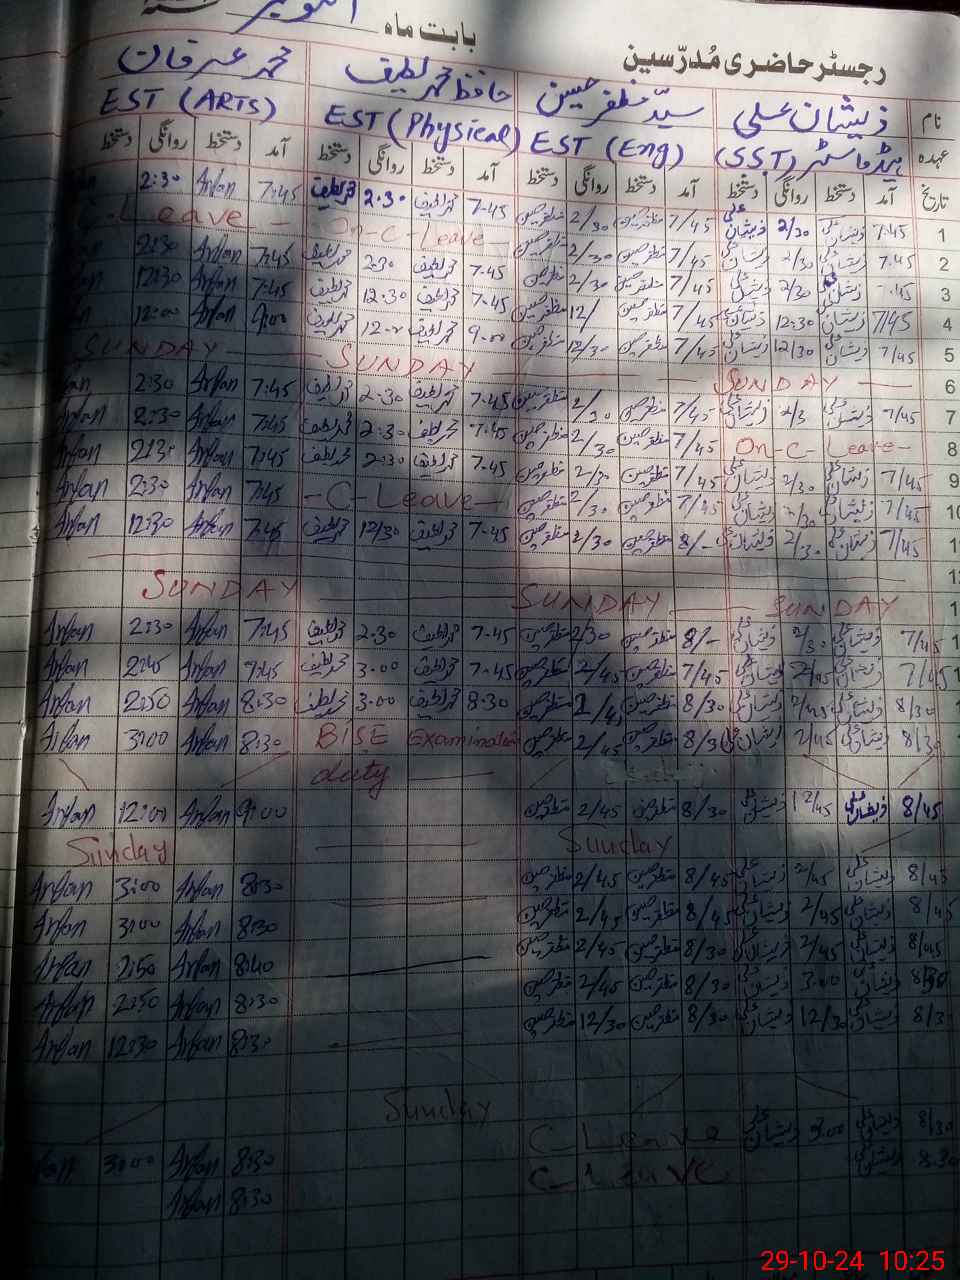 بابت ماہ اکتوبر
رجسٹر حاضری مُدرّسین
نام ذیشان علی سیّد مظفر حسین حافظ محمد لطیف محمد عرفان
عہدہ ہیڈ ماسٹر (SST) EST (Eng) EST (Physical) EST (ARTS)
تاریخ آمد دستخط روانگی دستخط آمد دستخط روانگی دستخط آمد دستخط روانگی دستخط آمد دستخط روانگی دستخط
1 7:45 ذیشان علی 2/30 ذیشان علی 7/45 مظفر حسین 2/30 مظفر حسین 7.45 محمد لطیف 2.30 محمد لطیف 7:45 Irfan 2:30
2 7.45 ذیشان علی 2/30 ذیشان علی 7/45 مظفر حسین 2/30 مظفر حسین On-C-Leave- Leave
3 7.45 2/30 7/45 مظفر حسین 2/30 7.45 محمد لطیف 2.30 محمد لطیف 7:45 Irfan 2:30
4 7/45 12:30 7/45 مظفر حسین 12/ 7.45 محمد لطیف 12.30 محمد لطیف 7:45 Irfan 12:30
5 7/45 ذیشان علی 12/30 ذیشان علی 7/45 مظفر حسین 12/30 مظفر حسین 9.00 محمد لطیف محمد لطیف 9:00 Irfan 12:00
6 SUNDAY SUNDAY SUNDAY
7 7/45 ذیشان علی ذیشان علی 7/45 مظفر حسین 2/30 مظفر حسین 7.45 محمد لطیف 2.30 محمد لطیف 7:45 Irfan 2:30
8 On-C-Leave- 7/45 مظفر حسین 2/30 مظفر حسین 7.45 محمد لطیف 2.30 محمد لطیف 7:45 Irfan 2:30
9 7/45 ذیشان علی 2/30 ذیشان علی 7/45 مظفر حسین 2/30 مظفر حسین 7.45 محمد لطیف 2:30 محمد لطیف 7:45 Irfan 2:30
10 7/45 ذیشان علی 2/30 ذیشان علی 7/45 مظفر حسین 2/30 مظفر حسین -C-Leave- 7:45 Irfan 2:30 Irfan
7/45 ذیشان علی 2/30 ذیشان علی 8/- مظفر حسین 2/30 مظفر حسین 7.45 محمد لطیف 12/30 محمد لطیف 7:45 Irfan 12:30 Irfan
SUNDAY SUNDAY SUNDAY
7/45 ذیشان علی 2/30 ذیشان علی 8/- مظفر حسین 2/30 مظفر حسین 7.45 محمد لطیف 2.30 محمد لطیف 7:45 Irfan 2:30 Irfan
7/45 ذیشان علی 2/45 ذیشان علی 7/45 مظفر حسین 2/45 مظفر حسین 7.45 محمد لطیف 3.00 محمد لطیف Irfan Irfan
8/30 ذیشان علی 2/45 ذیشان علی 8/30 مظفر حسین مظفر حسین 8.30 محمد لطیف 3.00 محمد لطیف 8:30 Irfan 2:50 Irfan
ذیشان علی 2/45 ذیشان علی مظفر حسین 2/45 مظفر حسین BISE Examination 8:30 Irfan 3:00 Irfan
duty
8/45 ذیشان علی 12/45 ذیشان علی 8/30 مظفر حسین 2/45 مظفر حسین 9:00 Irfan 12:00 Irfan
Sunday Sunday
8/45 ذیشان علی 2/45 ذیشان علی 8/45 مظفر حسین 2/45 مظفر حسین 8:30 Irfan 3:00 Irfan
8/45 ذیشان علی 2/45 ذیشان علی 8/45 مظفر حسین 2/45 مظفر حسین 8:30 Irfan 3:00 Irfan
8/45 ذیشان علی 2/45 ذیشان علی 8/30 مظفر حسین 2/45 مظفر حسین 8:40 Irfan 2:50 Irfan
8/30 ذیشان علی 3.00 ذیشان علی 8/30 مظفر حسین 2/45 مظفر حسین 8:30 Irfan 2:50 Irfan
ذیشان علی 12/30 ذیشان علی 8/30 مظفر حسین 12/30 مظفر حسین 8:30 Irfan 12:30 Irfan
Sunday
8/30 ذیشان علی 3.00 ذیشان علی C-Leave 8:30 Irfan 3:00
8.30 ذیشان علی C-Leave 8:30 Irfan
29-10-24 10:25